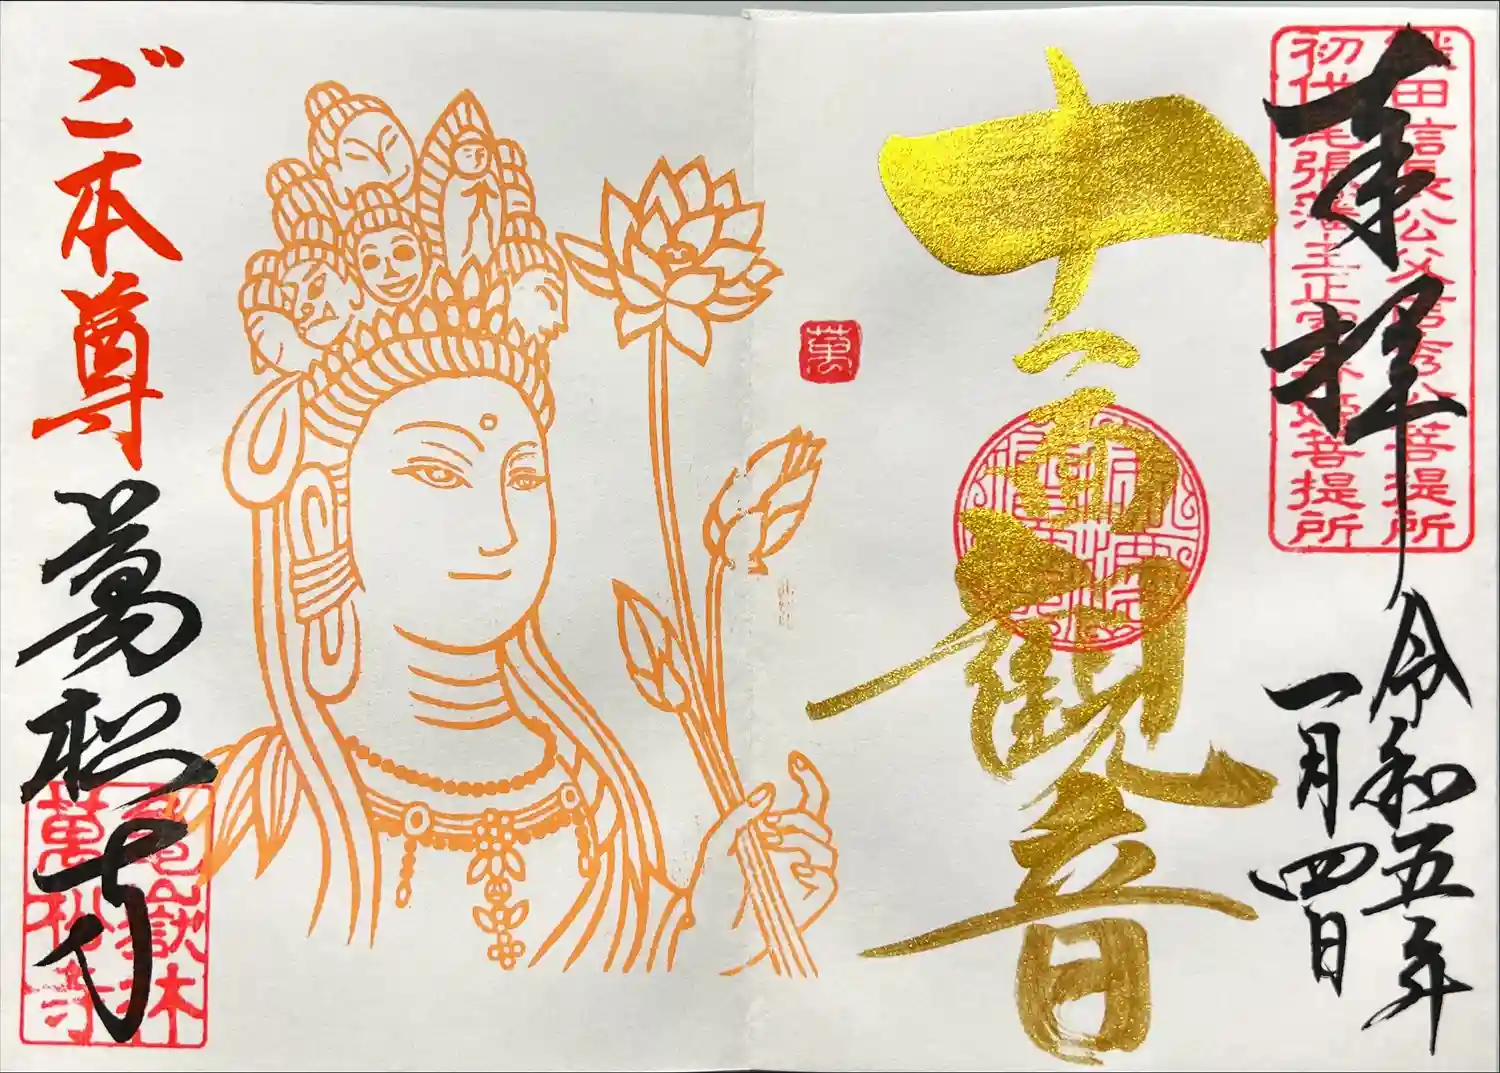 奉拝
令和五年
一月四日
織田信長公父君信秀公菩提所
初代尾張藩主正室春姫菩提所
十一面観音
萬
ご本尊
萬松寺
亀嶽林
萬松寺